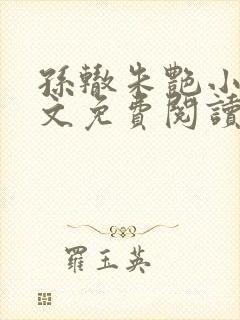 孫轍朱艷小
文免費閱讀
羅玉英